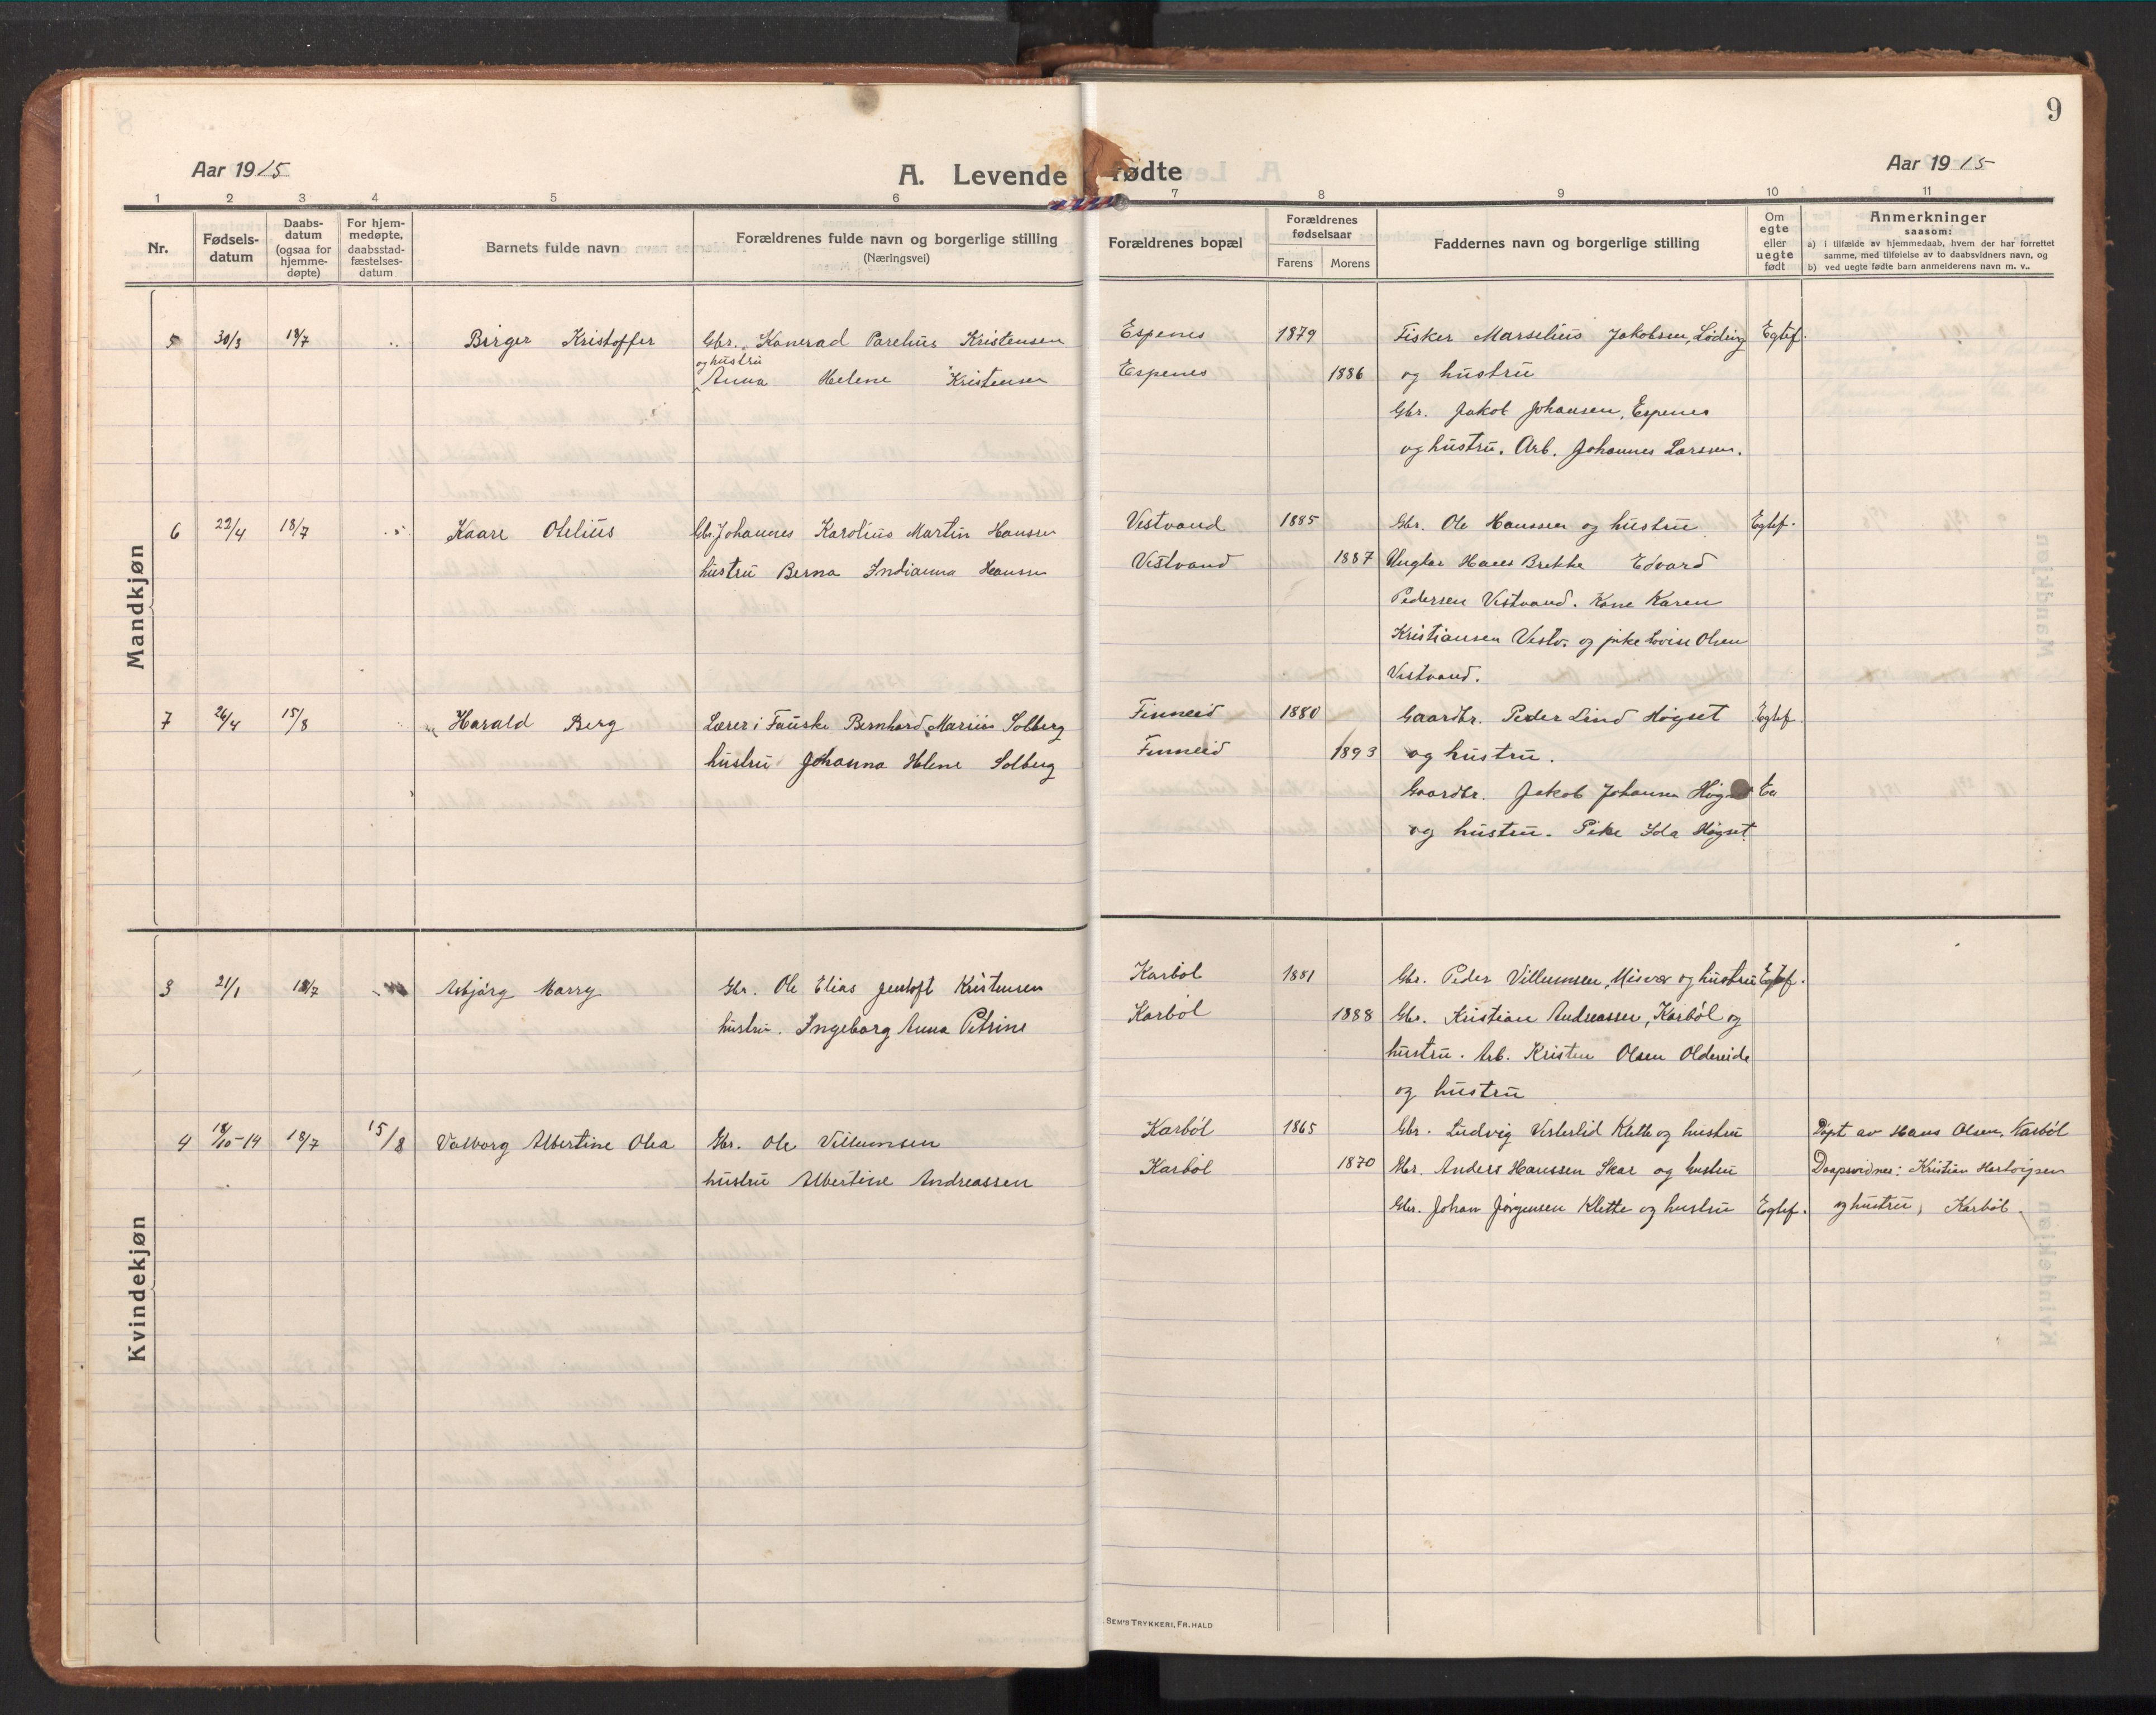 9
Aar 1915
A. Levende fødte
Aar 1915
1 2 3 4 5 6 7 8 9 10 11
Nr.
Fødsels-
datum
Daabs-
datum
(ogsaa for
hjemme-
døpte)
For hjem-
medøpte,
daabsstad-
fæstelses-
datum
Barnets fulde navn
Forældrenes fulde navn og borgerlige stilling
(Næringsvei)
Forældrenes bopæl
Forældrenes
fødselsaar
Farens Morens
Faddernes navn og borgerlige stilling
Om
egte
eller
uegte
født
Anmerkninger
saasom:
a) i tilfælde av hjemmedaab, hvem der har forrettet
samme, med tilføielse av to daabsvidners navn, og
b) ved uegte fødte barn anmelderens navn m. v..
Mandkjøn
5 30/3 18/7 Birger Kristoffer Gbr. Konerad Parelius Kristensen Espenes 1879 Fisker Marselius Jakobsen, Löding Egtef.
og hustru
Anna Helene Kristensen Espenes 1886 og hustru
Gbr. Jakob Johansen, Espenes
og hustru. Arb. Johannes Larssen.
6 22/4 18/7 Kaare Otelius Gbr. Johannes Karolius Martin Hanssen Vestvand 1885 Gbr. Ole Hanssen og hustru Egtef.
hustru Berna Indianna Hanssen Vestvand 1887 Ungkar Hans Brekke Edvard
Pedersen Vestvand. Kone Karen
Kristiansen Vestv. og pike Lovise Olsen
Vestvand.
7 26/4 15/8 Harald Berg Lærer i Fauske Bernhard Marius Solberg Finneid 1880 Gaardbr. Peder Lind Høgset Egtef.
hustru Johanna Helene Solberg Finneid 1893 og hustru.
Gaardbr. Jakob Johansen
og hustru. Pike Ida Høgset
Kvindekjøn
3 21/1 18/7 Asbjörg Marry Gbr. Ole Elias Jentoft Kristensen Karböl 1881 Gbr. Peder Villumsen, Misvær og hustru Egtef.
hustru. Ingeborg Anna Petrine Karböl 1888 Gbr. Kristian Andreassen, Karböl og
hustru. Arb. Kristen Olsen Oldereide
og hustru
4 18/10-14 18/7 15/8 Valborg Albertine Olea Gbr. Ole Villumsen Karböl 1865 Gbr. Ludvig Vesterlid Klette og hustru Döpt av Hans Olsen, Karböl
hustru Albertine Andreassen Karböl 1870 Gbr. Anders Hanssen Skar og hustru Daapsvidner: Kristian Hartvigsen
Gbr. Johan Jörgensen Klette og hustru Egtef. og hustru, Karböl.
SEM'S TRYKKERI, FR. HALD